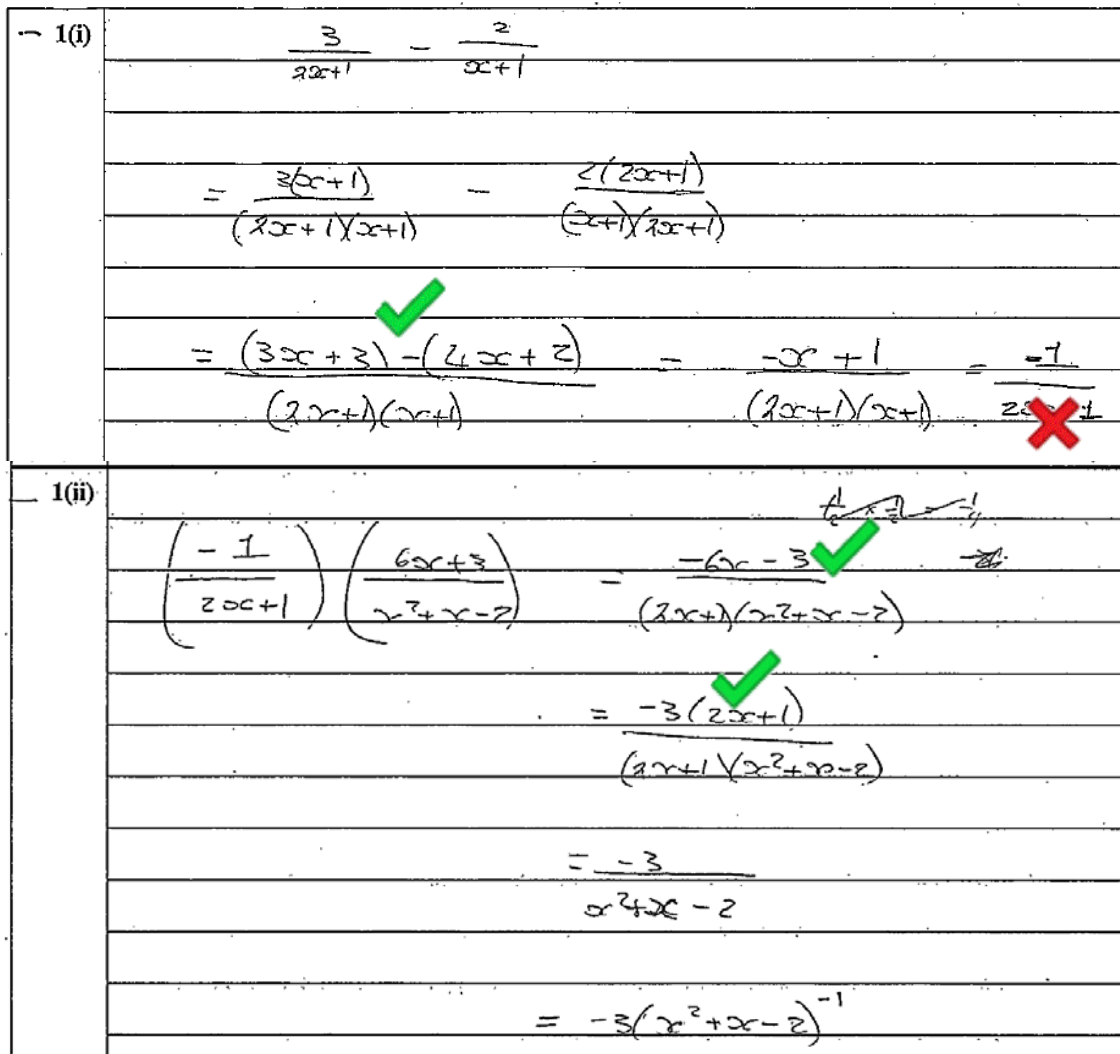 1(i)
3/(2x+1) - 2/(x+1)
= 3(x+1)/((2x+1)(x+1)) - 2(2x+1)/((x+1)(2x+1))
= ((3x+3)-(4x+2))/((2x+1)(x+1)) = (-x+1)/((2x+1)(x+1)) = -1/(2x+1)
1(ii)
(-1/(2x+1)) ((6x+3)/(x²+x-2)) = (-6x-3)/((2x+1)(x²+x-2))
= -3(2x+1)/((2x+1)(x²+x-2))
= -3/(x²+x-2)
= -3(x²+x-2)⁻¹